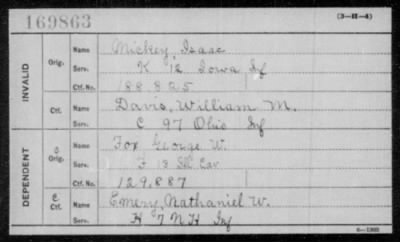 169863
(3—H—4)
INVALID
Orig.
Name Mickey, Isaac
Serv. K 12 Iowa Inf
Ctf. No. 188825
Ctf.
Name Davis, William M.
Serv. C 97 Ohio Inf
DEPENDENT
Orig.
Name Fox George W.
Serv. F 13 Ill Cav
Ctf. No. 129,887
C.
Ctf.
Name Emery, Nathaniel W.
Serv. H 7 N H Inf